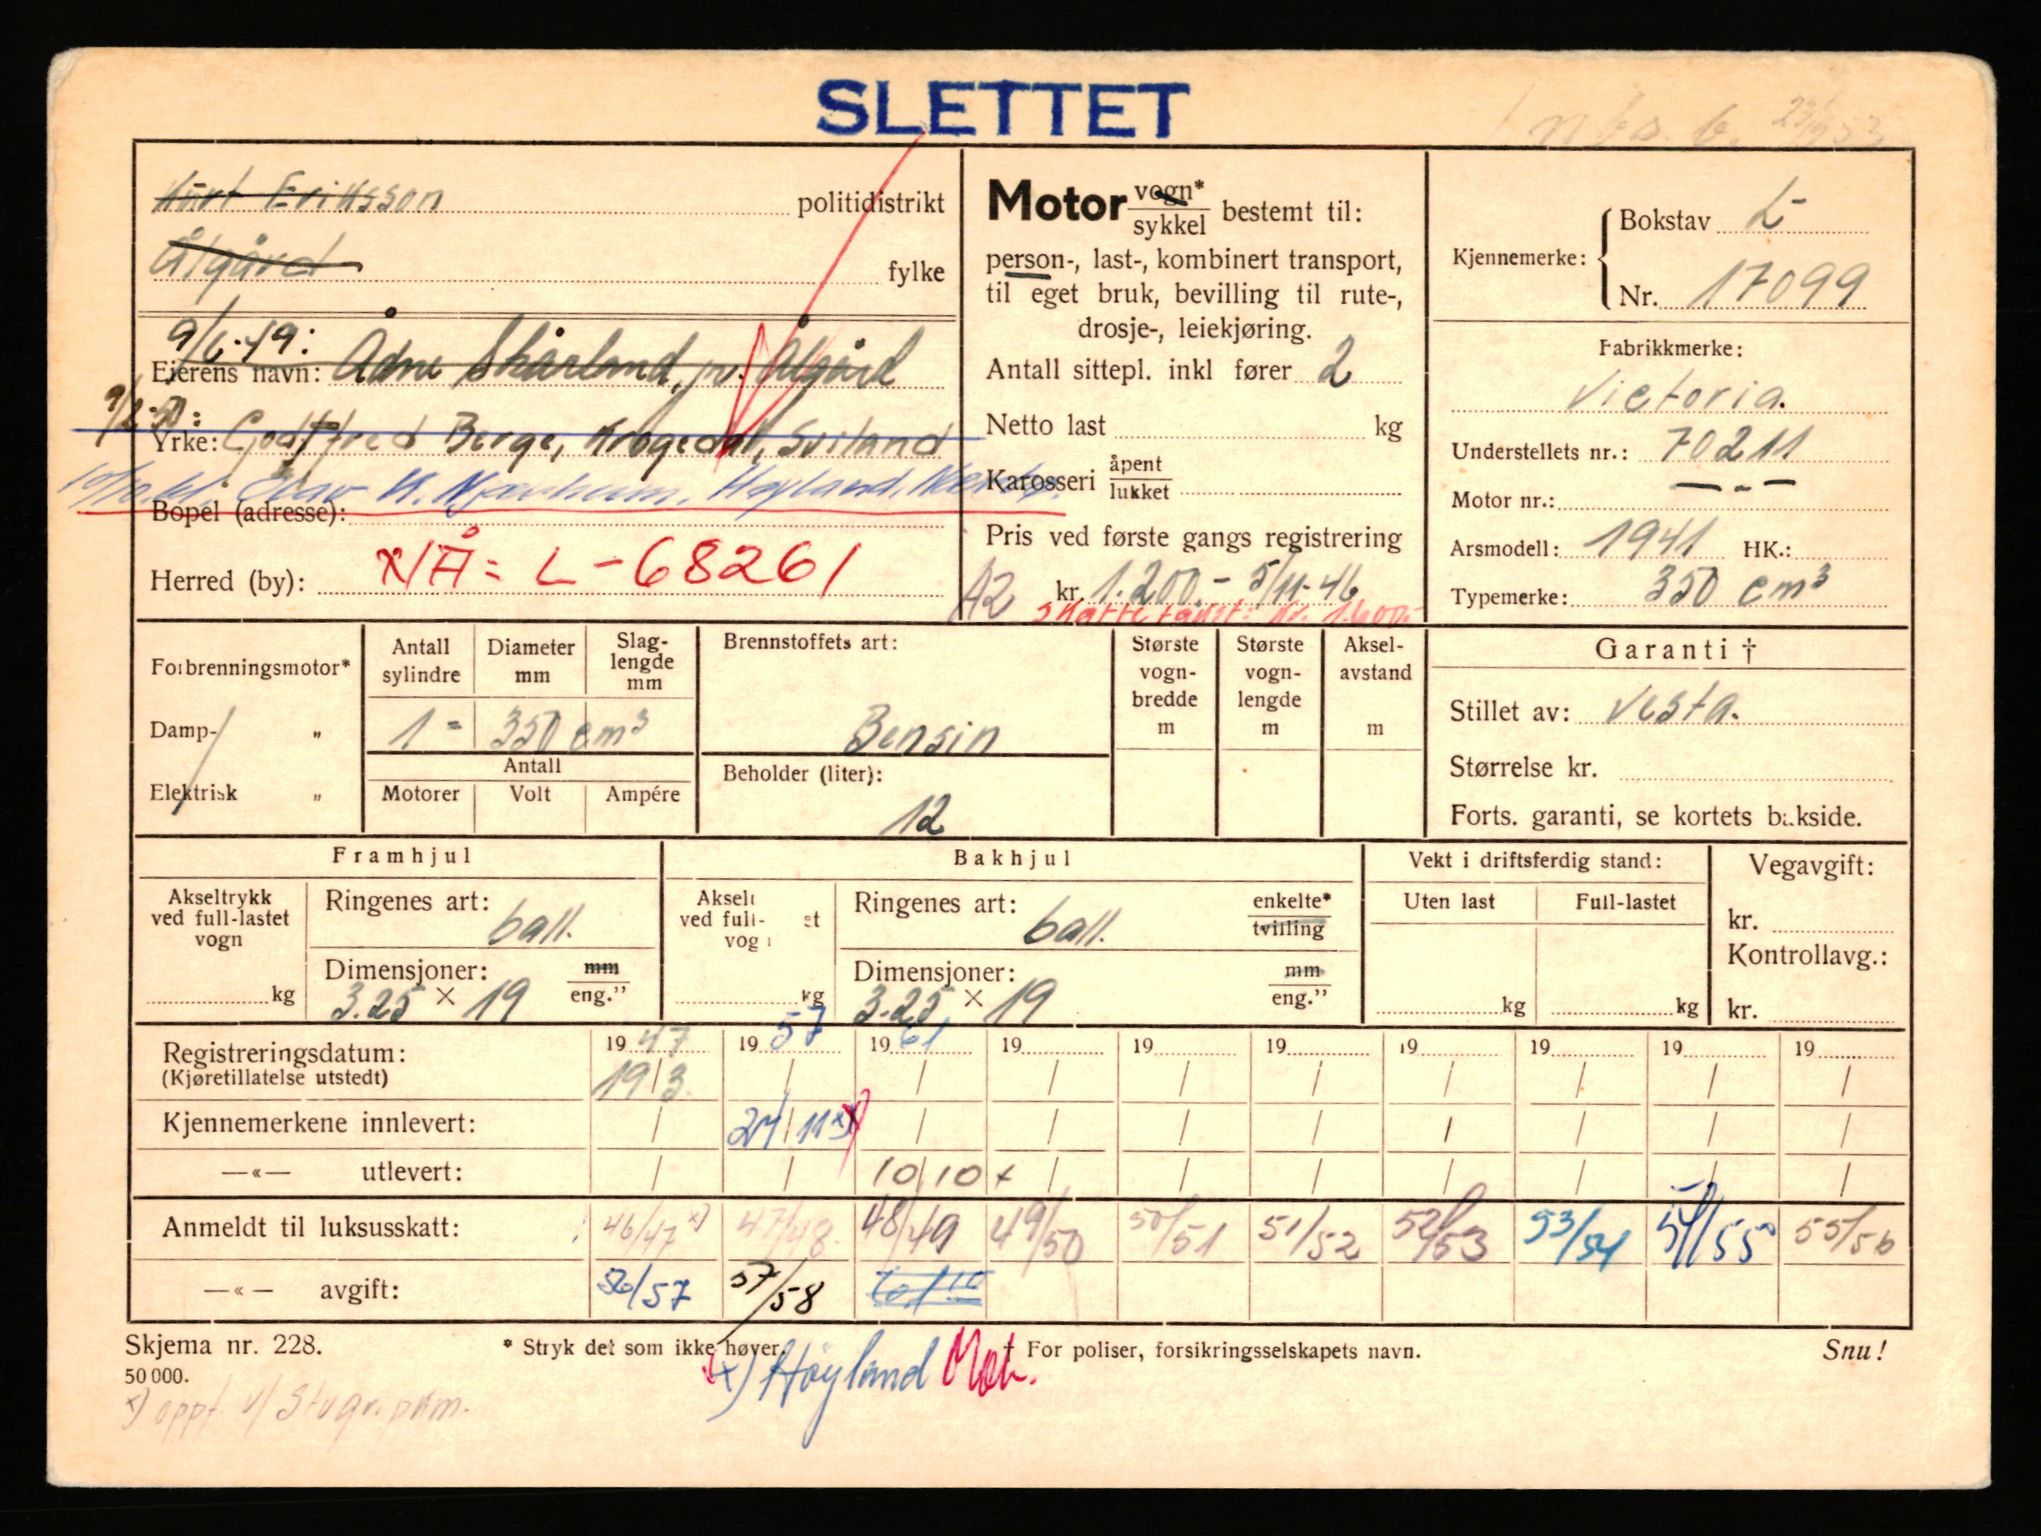 SLETTET
Kurt Eriksson politidistrikt
Ålgård fylke
9/6-49:
Eierens navn: Ådne Skårland, pr. Ålgård
Yrke: Godtfred Berge, Krogedal, Sviland
Bopel (adresse):
Herred (by): N/Å: L-68261
Motor vogn* sykkel bestemt til:
person-, last-, kombinert transport,
til eget bruk, bevilling til rute-,
drosje-, leiekjøring.
Antall sittepl. inkl fører 2
Netto last kg
Karosseri åpent lukket
Pris ved første gangs registrering
A2 kr. 1.200.- 5/11-46
Skattetakst: kr. 1.600.-
Kjennemerke: Bokstav L-
Nr. 17099
Fabrikkmerke:
Victoria.
Understellets nr.: 70211
Motor nr.: — - —
Årsmodell: 1941 HK.:
Typemerke: 350 cm³
Forbrenningsmotor*
Damp- "
Elektrisk "
Antall sylindre
Diameter mm
Slag- lengde mm
1 = 350 cm³
Antall
Motorer Volt Ampére
Brennstoffets art:
Bensin
Beholder (liter):
12
Største vogn- bredde m
Største vogn- lengde m
Aksel- avstand m
Garanti †
Stillet av: Vesta.
Størrelse kr.
Forts. garanti, se kortets bakside.
Framhjul
Akseltrykk ved full-lastet vogn kg
Ringenes art: ball.
Dimensjoner: mm eng."
3.25 × 19
Bakhjul
Ringenes art: ball. enkelte* tvilling
Dimensjoner: mm eng."
3.25 × 19
kg
Vekt i driftsferdig stand:
Uten last Full-lastet
kg kg
Vegavgift:
kr.
Kontrollavg.:
kr.
Registreringsdatum: 19 47 19 57 19 61 19 19 19 19 19 19 19
(Kjøretillatelse utstedt) 19/3. / / / / / / / / /
Kjennemerkene innlevert: / 27/11 x) / / / / / / / /
—«— utlevert: / / 10/10 + / / / / / / /
Anmeldt til luksusskatt: 46/47 x) 47/48 48/49 49/50 50/51 51/52 52/53 53/54 54/55 55/56
—«— avgift: 56/57 57/58
Skjema nr. 228. * Stryk det som ikke høver. † For poliser, forsikringsselskapets navn. Snu!
50 000.
x) Høyland
x) oppt. v/